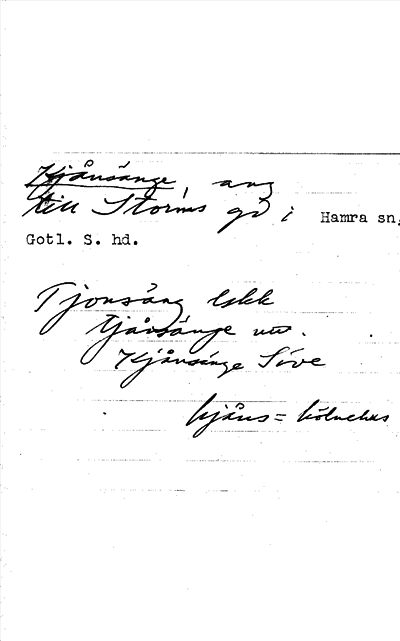 Kjånsänge, äng
till Storms gd i Hamra sn,
Gotl. S. hd.
Tjonsäng lskk
Tjånsänge uv.
Kjånsänge Söve
kjåns = kölnehus